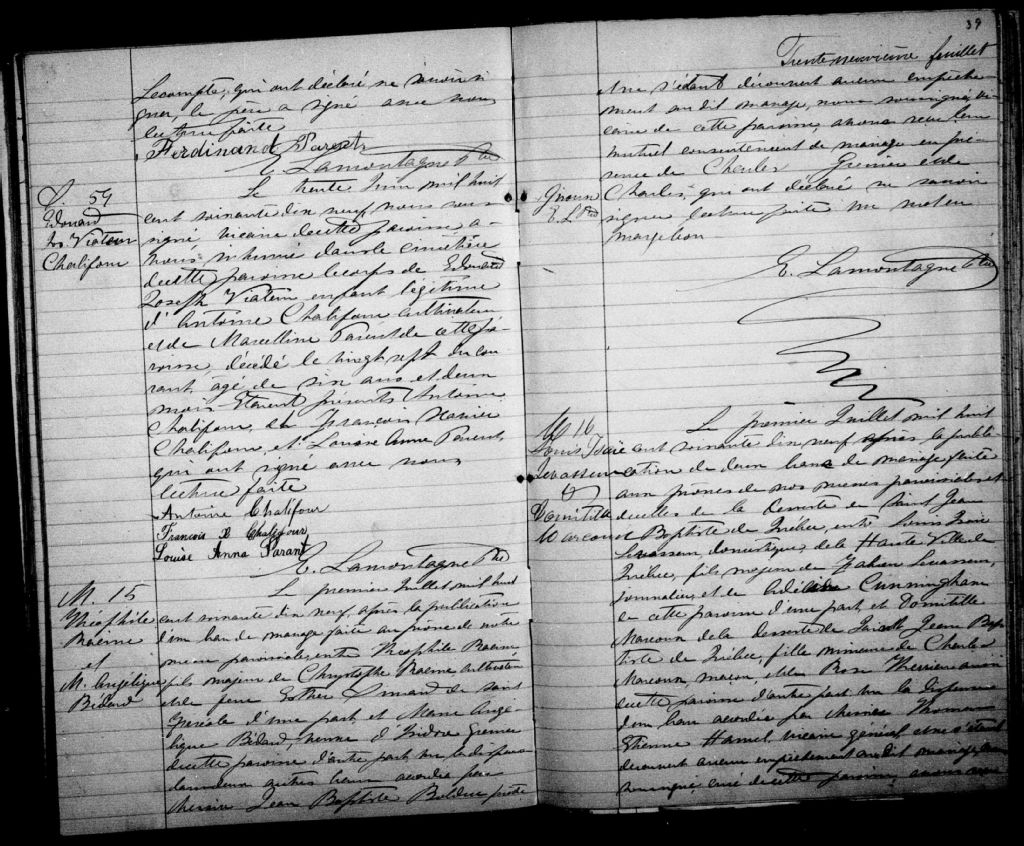 Lecompte, qui ont déclaré ne savoir si
gner, le père a signé avec nous
lecture faite
Ferdinand Parent
E. Lamontagne Ptre
S. 59
Edouard
Js Viateur
Chalifour
Le trente Juin mil huit
cent soixante dix neuf nous sous
signé, vicaire de cette paroisse a-
vons inhumé dans le cimetière
de cette paroisse le corps de Edouard
Joseph Viateur enfant légitime
d'Antoine Chalifour cultivateur
et de Marcelline Parent de cette pa-
roisse, décédé le vingt sept du cou
rant âgé de six ans et deux
mois Etaient présents Antoine
Chalifour, François Xavier
Chalifour, et Louise Anna Parent,
qui ont signé avec nous
lecture faite
Antoine Chalifour
François X Chalifour
Louise Anna Parant
E. Lamontagne Ptre
M. 15
Théophile
Racine
et
M. Angélique
Bidard
Le premier Juillet mil huit
cent soixante dix neuf, après la publication
d'un ban de mariage faite au prône de notre
messe paroissiale, entre Théophile Racine
fils majeur de Christophe Racine cultivateur
et de feue Esther de Saint
d'une part, et Marie Angé-
lique Bidard, veuve d'Isidore Grenier
de cette paroisse d'autre part, vu la dispense
des deux autres bans accordée par
Messire Jean Baptiste
39
Trente neuvième feuillet
ne s'étant découvert aucun empêche-
ment au dit mariage, nous soussigné, vi
caire de cette paroisse, avons reçu leur
mutuel consentement de mariage en pré-
sence de Charles Grenier et de
Charles, qui ont déclaré ne savoir
signer lecture faite un mot en
marge bon
E. L. Ptre
E. Lamontagne Ptre
M 16
Louis Isaïe
Levasseur
&
Domitille
Marcoux
Le premier Juillet mil huit
cent soixante dix neuf après la publi-
cation de deux bans de mariage faite
aux prônes de nos messes paroissiales et
de celles de la desserte de Saint Jean
Baptiste de Québec, entre Louis Isaïe
Levasseur, domestique, de la Haute Ville de
Québec, fils majeur de Levasseur,
journalier, et de Adéline Cunningham
de cette paroisse d'une part, et Domitille
Marcoux de la desserte de Saint Jean Bap
tiste de Québec, fille mineure de Charles
Marcoux, maçon, et de Rose Therrien aussi
de cette paroisse d'autre part vu la dispense
d'un ban accordée par Messire Thomas
Etienne Hamel, vicaire général et ne s'étant
découvert aucun empêchement au dit mariage, nous
soussigné, curé de cette paroisse, avons reçu